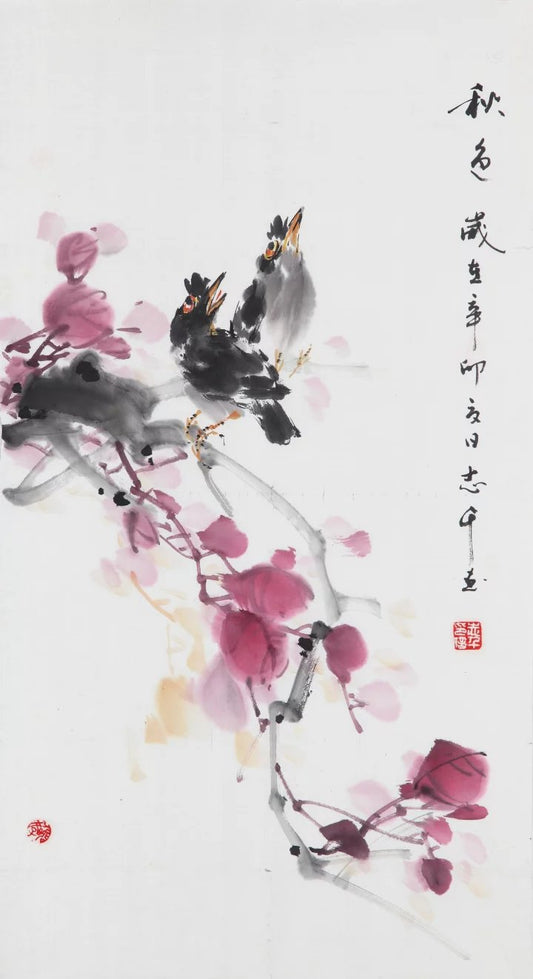 秋色 歲在辛卯夏日 志千画